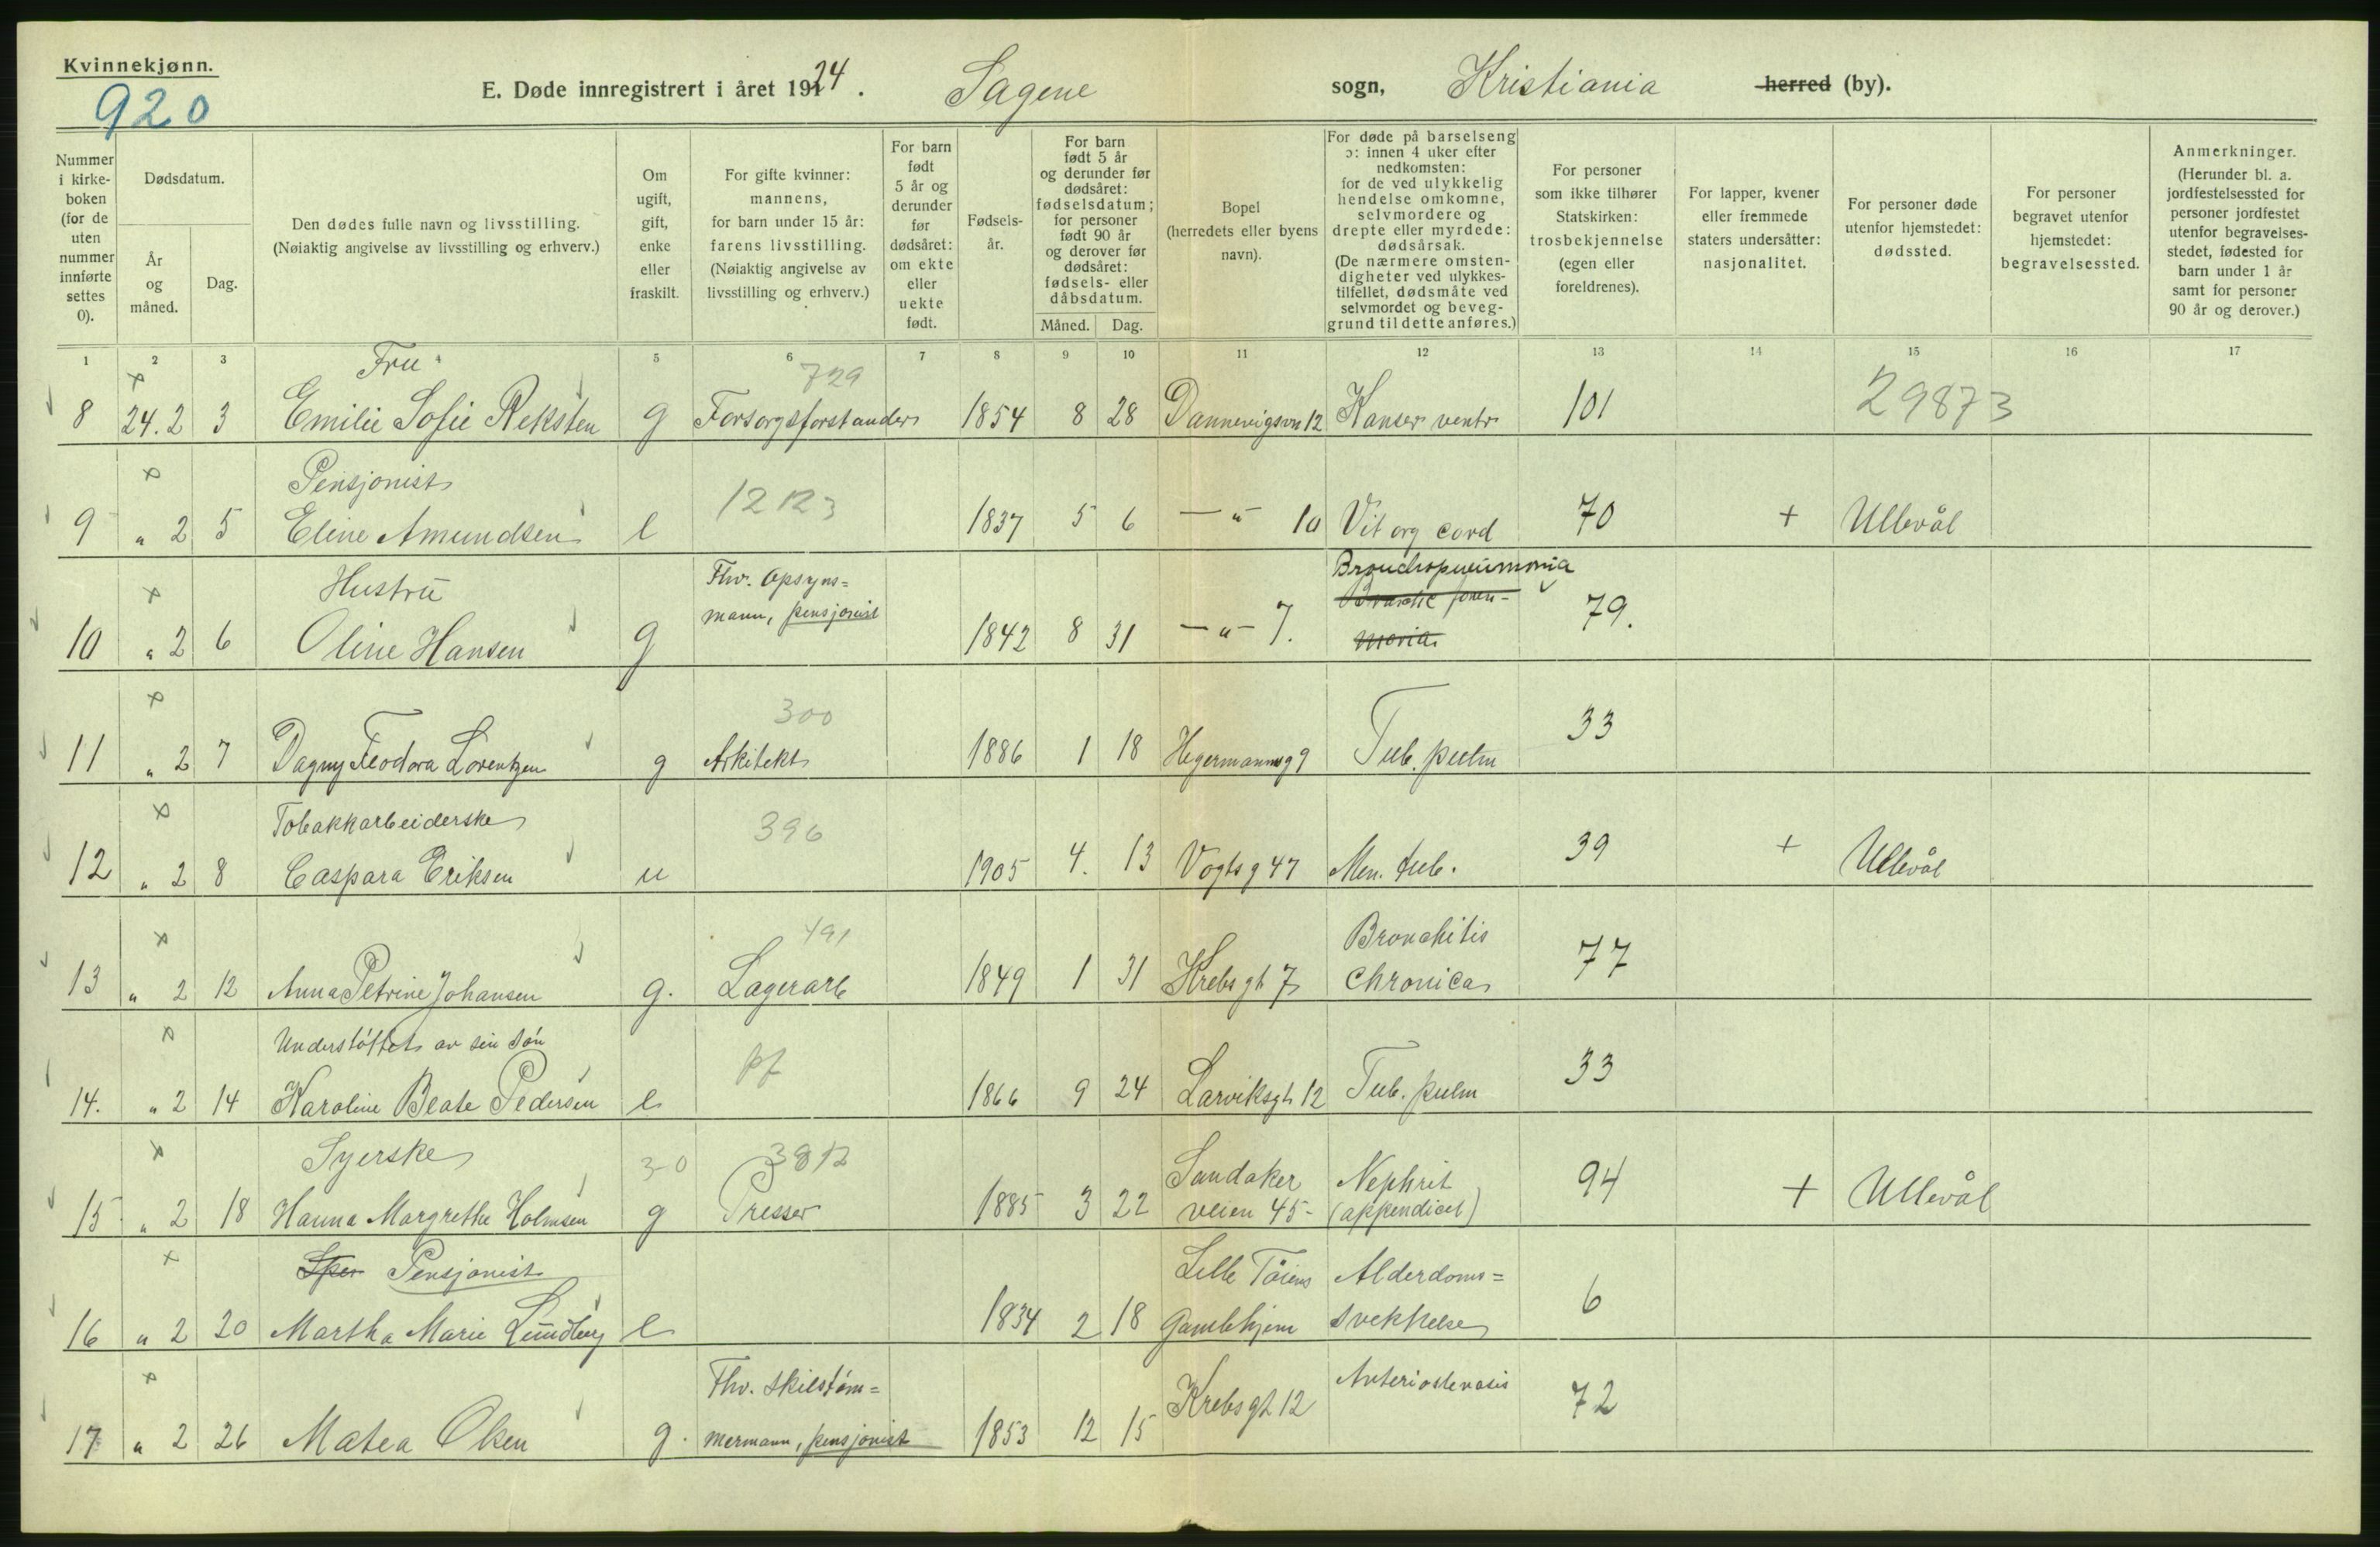 Kvinnekjønn.
920
E. Døde innregistrert i året 1924. Sagene sogn, Kristiania herred (by).
Nummer i kirke-boken (for de uten nummer innførte settes 0).
Dødsdatum.
År og måned.
Dag.
Den dødes fulle navn og livsstilling.
(Nøiaktig angivelse av livsstilling og erhverv.)
Om ugift, gift, enke eller fraskilt.
For gifte kvinner: mannens, for barn under 15 år: farens livsstilling. (Nøiaktig angivelse av livsstilling og erhverv.)
For barn født 5 år og derunder før dødsåret: om ekte eller uekte født.
Fødsels-år.
For barn født 5 år og derunder før dødsåret: fødselsdatum; for personer født 90 år og derover før dødsåret: fødsels- eller dåbsdatum.
Måned. Dag.
Bopel (herredets eller byens navn).
For døde på barselseng ɔ: innen 4 uker efter nedkomsten: for de ved ulykkelig hendelse omkomne, selvmordere og drepte eller myrdede: dødsårsak. (De nærmere omsten-digheter ved ulykkes-tilfellet, dødsmåte ved selvmordet og beveg-grund til dette anføres.)
For personer som ikke tilhører Statskirken: trosbekjennelse (egen eller foreldrenes).
For lapper, kvener eller fremmede staters undersåtter: nasjonalitet.
For personer døde utenfor hjemstedet: dødssted.
For personer begravet utenfor hjemstedet: begravelsessted.
Anmerkninger. (Herunder bl. a. jordfestelsessted for personer jordfestet utenfor begravelses-stedet, fødested for barn under 1 år samt for personer 90 år og derover.)
1 2 3 5 6 7 8 9 10 11 12 13 14 15 16 17
Fru 729
8 24.2 3 Emilie Sofie Reksten g Forsorgsforstander 1854 8 28 Dannevigsvn 12 Kanser ventr 101 29873
Pensjonist 12123
9 " 2 5 Eline Amundsen e 1837 5 6 — " 10 Vit org cord 70 + Ullevål
Hustru Fhv. Opsyns= Bronchopneumonia
mann, pensjonist
10 " 2 6 Oline Hansen g 1842 8 31 — " — 7. monia 79.
300
11 " 2 7 Dagny Feodora Lorentzen g Arkitekt 1886 1 18 Hegermannsg 9 Tub. pulm 33
Tobakkarbeiderske 396
12 " 2 8 Caspara Eriksen u 1905 4. 13 Vogtsg 47 Men. tub. 39 + Ullevål
491 Bronchitis
13 " 2 12 Anna Petrine Johansen g. Lagerarb 1849 1 31 Krebsgt 7 Chronica 77
Understöttet av sin sön pf
14. " 2 14 Karoline Beate Pedersen e 1866 9 24 Larviksgt 12 Tub. pulm 33
Syerske 3-0 3812 Sandaker Nephrit
15 " 2 18 Hanna Margrethe Holmsen g Presser 1885 3 22 veien 45- (appendicit) 94 + Ullevål
Pensjonist Lille Töiens Alderdoms=
16 " 2 20 Martha Marie Lundberg e 1834 2 18 Gamlehjem svekkelse 6
Fhv. skibstöm= Arteriostenosis
17 " 2 26 Matea Olsen g. mermann, pensjonist 1853 12 15 Krebsgt 12 72